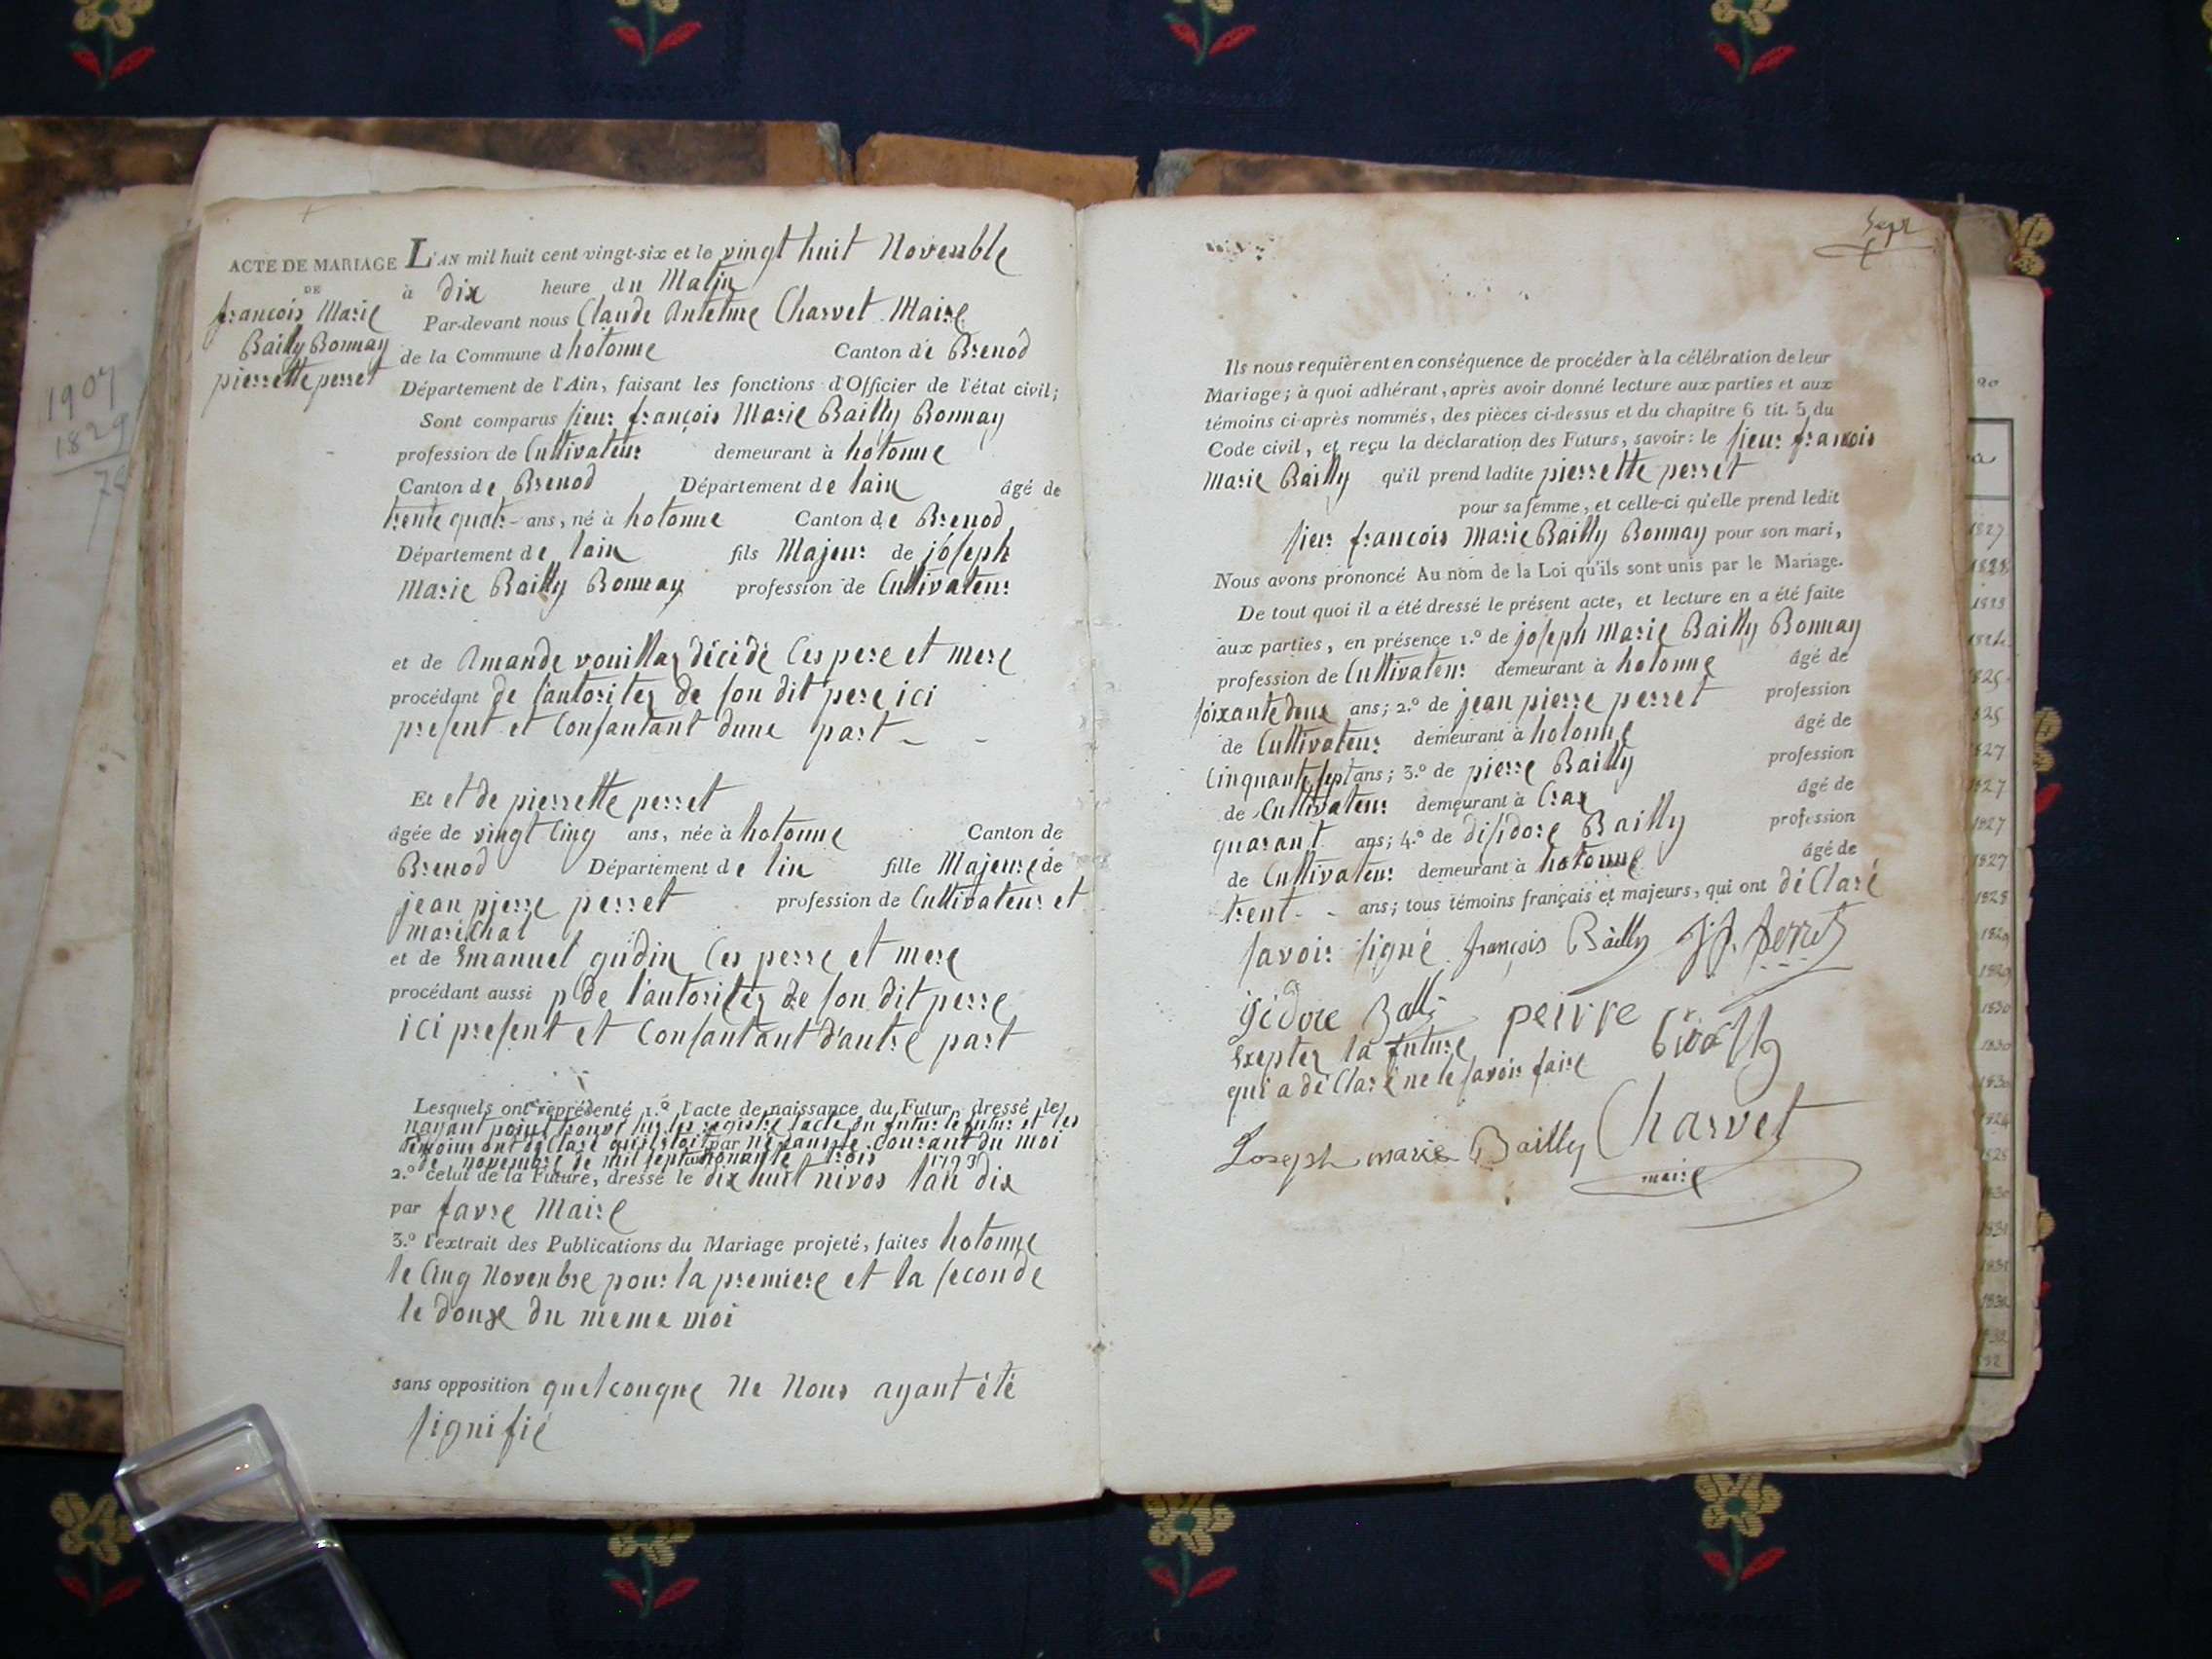 1907
1829
ACTE DE MARIAGE
DE
françois Marie
Bailly Bonnay
pierrette perret
L'AN mil huit cent vingt-six et le vingt huit Novenble
à dix heure du Matin
Par-devant nous Claude Antelme Charvet Maire
de la Commune d hotonne Canton de Brenod
Département de l'Ain, faisant les fonctions d'Officier de l'état civil;
Sont comparus sieur françois Marie Bailly Bonnay
profession de Cultivateur demeurant à hotonne
Canton de Brenod Département de lain âgé de
trente quatr- ans, né à hotonne Canton de Brenod
Département de lain fils Majeur de joseph
Marie Bailly Bonnay profession de Cultivateur
et de Amande vouillaz décidé Ces pere et mere
procédant de l'autoritez de son dit pere ici
present et Consantant dune part - -
Et et de pierrette perret
âgée de vingt Cinq ans, née à hotonne Canton de
Brenod Département de lin fille Majeure de
jean pierre perret profession de Cultivateur et
maréchal
et de Emanuel gudin Ces perre et mere
procédant aussi p de l'autoritez de son dit perre
ici present et Consantant d'autre part
Lesquels ont représenté 1.º l'acte de naissance du Futur, dressé le
nayant point trouvé sur les registre lacte du futur le futur et les
témoins ont déclaré quil étoit par né courant du moi
de novembre de mil sept nonante trois 1793
2.º celui de la Future, dressé le dix huit nivos lan dix
par favre Maire
3.º l'extrait des Publications du Mariage projeté, faites hotonne
le Cinq Novenbre pour la premiere et la seconde
le douze du meme moi
sans opposition quelconque Ne Nous ayant été
signifié
Sept
Ils nous requièrent en conséquence de procéder à la célébration de leur
Mariage; à quoi adhérant, après avoir donné lecture aux parties et aux
témoins ci-après nommés, des pièces ci-dessus et du chapitre 6 tit. 5 du
Code civil, et reçu la déclaration des Futurs, savoir: le sieur francois
Marie Bailly qu'il prend ladite pierrette perret
pour sa femme, et celle-ci qu'elle prend ledit
sieur francois Marie Bailly Bonnay pour son mari,
Nous avons prononcé Au nom de la Loi qu'ils sont unis par le Mariage.
De tout quoi il a été dressé le présent acte, et lecture en a été faite
aux parties, en présence 1.º de joseph Marie Bailly Bonnay
profession de Cultivateur demeurant à hotonne âgé de
soixante deux ans; 2.º de jean pierre perret profession
de Cultivateur demeurant à hotonne âgé de
Cinquante sept ans; 3.º de pierre Bailly profession
de Cultivateur demeurant à Craz âgé de
quarant ans; 4.º de disidore Bailly profession
de Cultivateur demeurant à hotonne âgé de
trent - - ans; tous témoins français et majeurs, qui ont déClaré
savoir signé françois Bailly J P. Perret
isidore Balli peirre
Exeptez la future
qui a déClaré ne le savoir faire
Joseph marie Bailly Charvet
maire
1827
1828